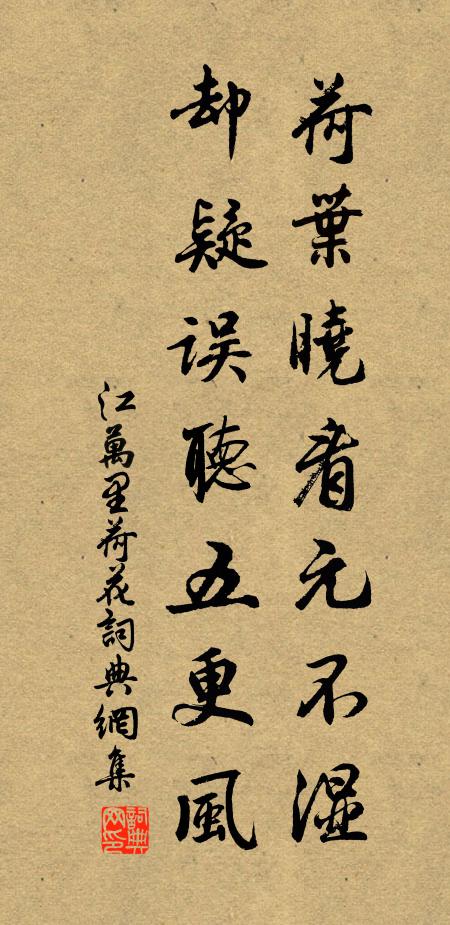 荷葉曉看元不湿
却疑误聽五更風
江萬里荷花詞典網集
詞典網印